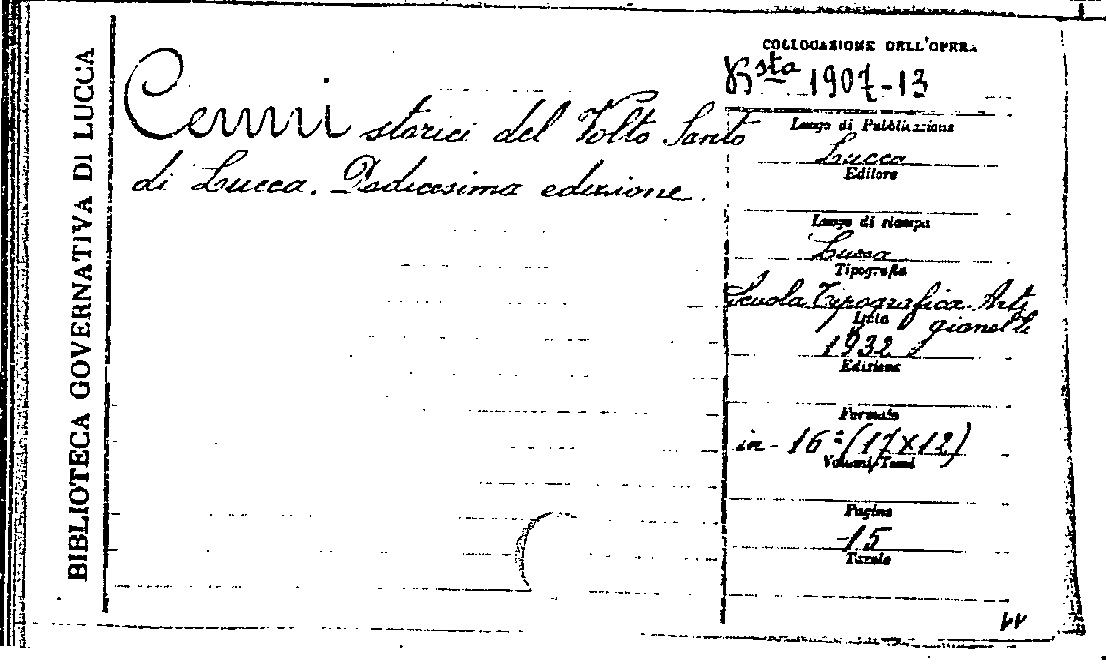 BIBLIOTECA GOVERNATIVA DI LUCCA
Cenni storici del Volto Santo
di Lucca. Dodicesima edizione.
COLLOCAZIONE DELL'OPERA
Bsta 1907-13
Luogo di Pubblicazione
Lucca
Editore
Luogo di stampa
Lucca
Tipografia
Scuola Tipografica Arti
gianelli
Data
1932
Edizione
Formato
in-16º (17×12)
Volumi/Tomi
Pagine
15
Tavole